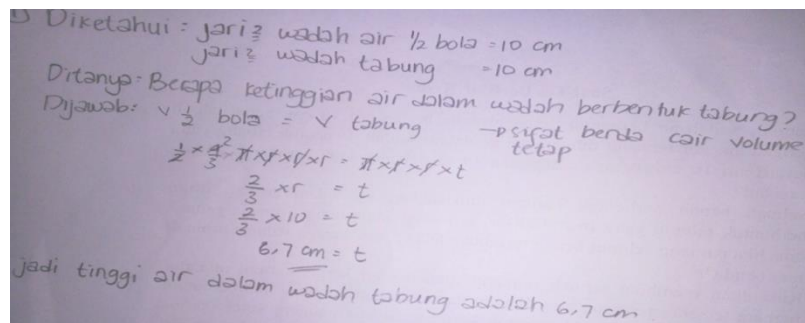 1) Diketahui : jari2 wadah air 1/2 bola = 10 cm
jari2 wadah tabung = 10 cm
Ditanya : Berapa ketinggian air dalam wadah berbentuk tabung?
Dijawab : V 1/2 bola = V tabung → sifat benda cair volume
tetap
1/2 × 4/3 2 π × r × r × r = π × r × r × t
2/3 × r = t
2/3 × 10 = t
6,7 cm = t
jadi tinggi air dalam wadah tabung adalah 6,7 cm